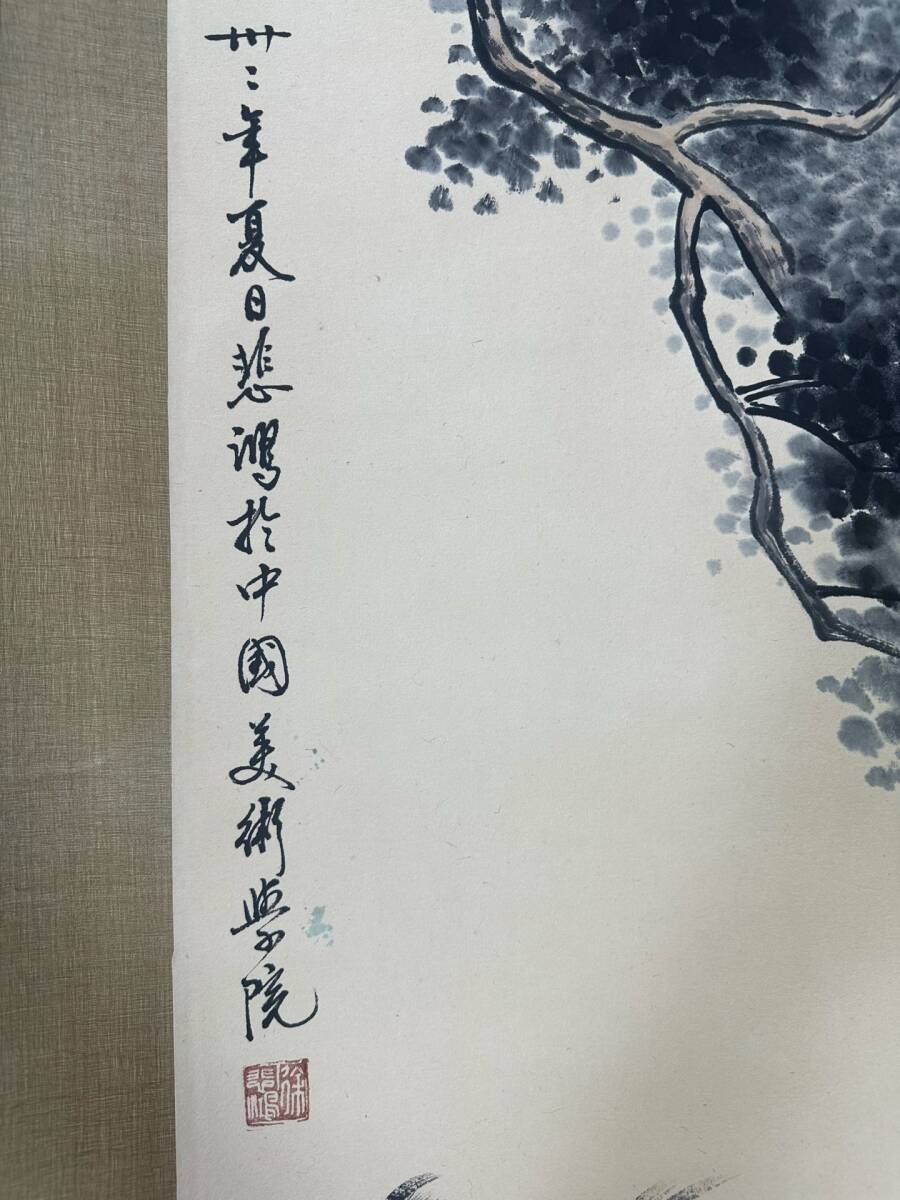 卅二年夏日悲鴻於中國美術學院
徐悲鴻